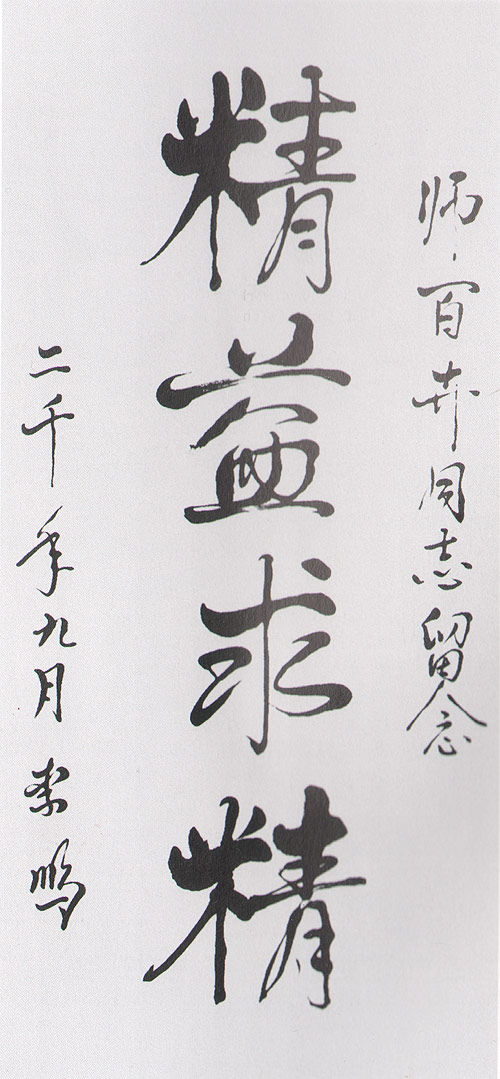 师百卉同志留念
精益求精
二千年九月 李鹏